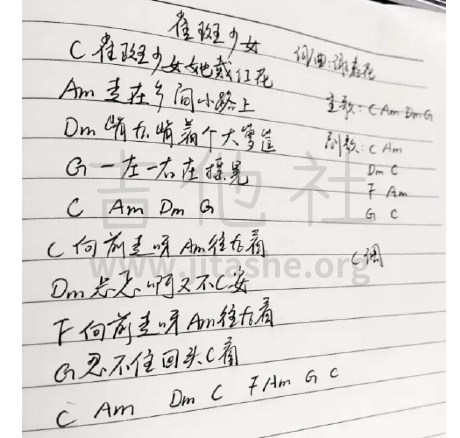 雀斑少女
C 雀斑少女她戴红花 词曲:谢春花
Am 走在乡间小路上 主歌: C Am Dm G
Dm 背后背着个大箩筐 副歌: C Am
Dm C
G 一左一右在摇晃 F Am
G C
C Am Dm G
C 向前走呀 Am往后看 C调
Dm 忐忑啊又不C安
F 向前走呀 Am往后看
G 忍不住回头C看
C Am Dm C F Am G C
吉他社
www.jitashe.org